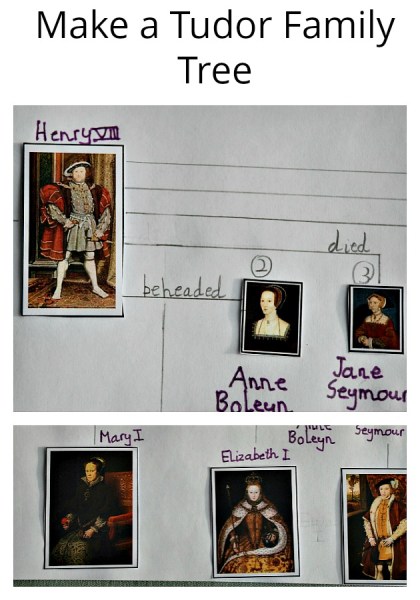 Make a Tudor Family
Tree
Henry VIII
died
② ③
beheaded
Anne
Boleyn
Jane
Seymour
Mary I
Boleyn Seymour
Elizabeth I